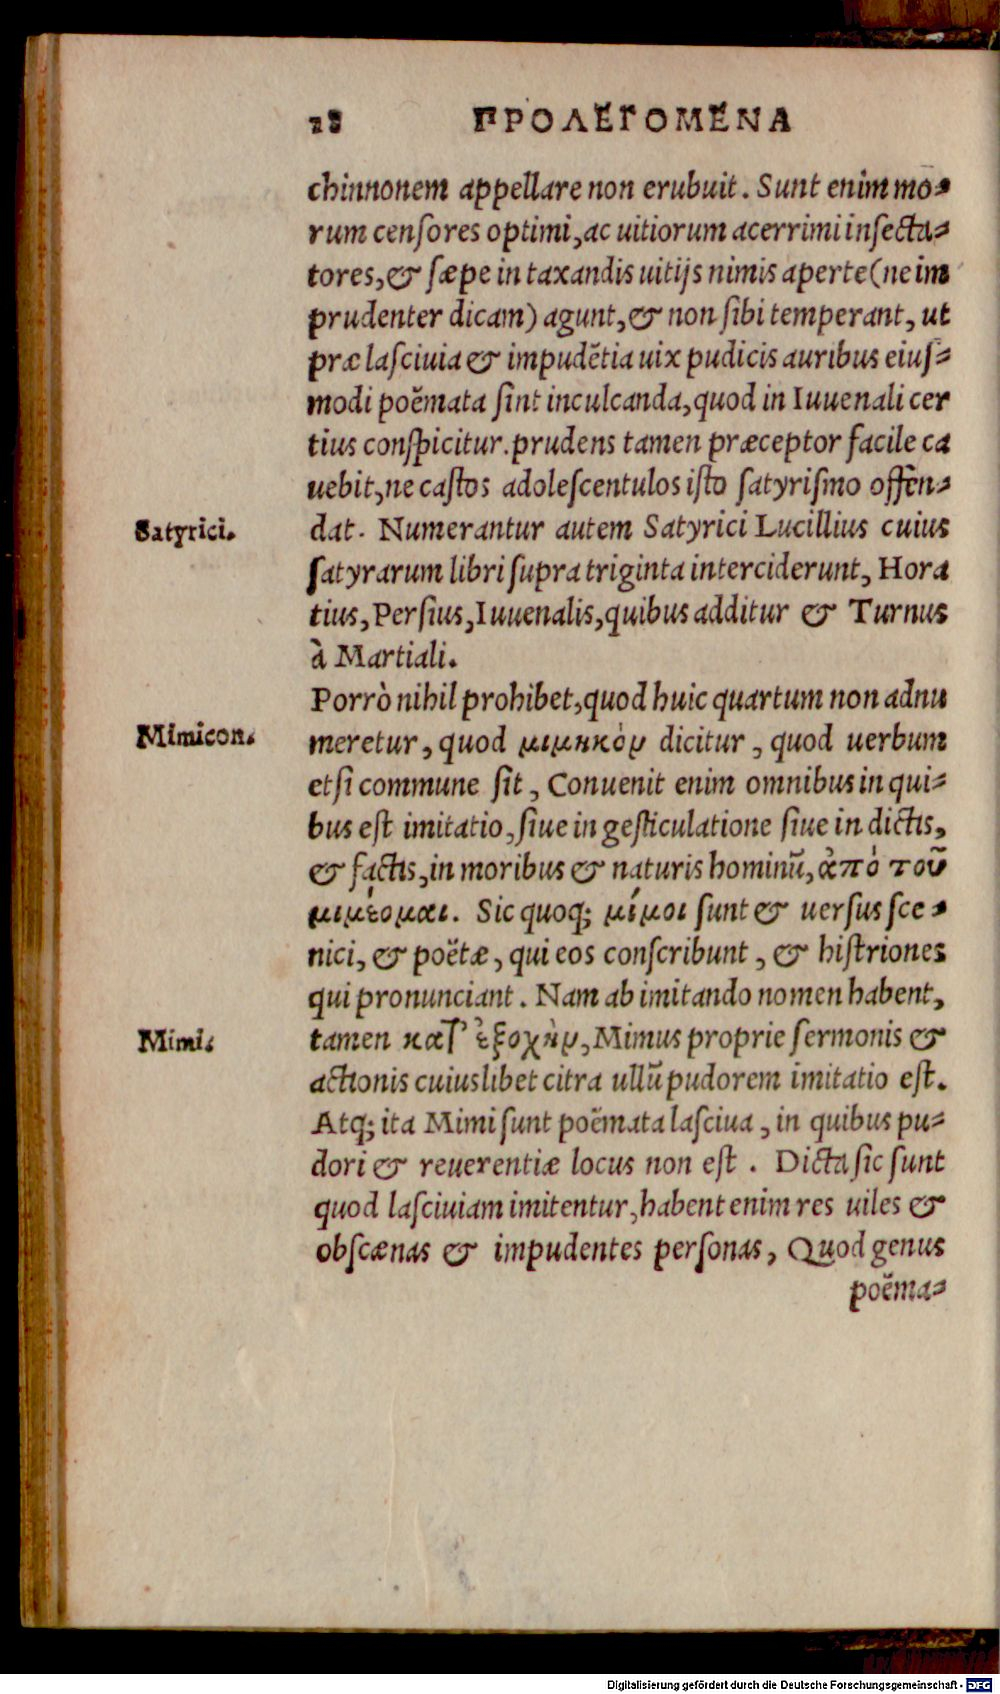 28 ΠΡΟΛΕΓΟΜΕΝΑ
chinnonem appellare non erubuit. Sunt enim mo-
rum cenſores optimi, ac uitiorum acerrimi inſecta-
tores, & ſæpe in taxandis uitijs nimis aperte (ne im
prudenter dicam) agunt, & non ſibi temperant, ut
præ laſciuia & impudẽtia uix pudicis auribus eiuſ-
modi poëmata ſint inculcanda, quod in Iuuenali cer
tius conſpicitur. prudens tamen præceptor facile ca
uebit, ne caſtos adoleſcentulos iſto ſatyriſmo offen-
Satyrici.
dat. Numerantur autem Satyrici Lucillius cuius
ſatyrarum libri ſupra triginta interciderunt, Hora
tius, Perſius, Iuuenalis, quibus additur & Turnus
à Martiali.
Porrò nihil prohibet, quod huic quartum non adnu
Mimicon.
meretur, quod μιμηκὸν dicitur, quod uerbum
etſi commune ſit, Conuenit enim omnibus in qui-
bus eſt imitatio, ſiue in geſticulatione ſiue in dictis,
& factis, in moribus & naturis hominũ, ἀπὸ τοῦ
μιμέομαι. Sic quoq; μίμοι ſunt & uerſus ſce-
nici, & poëtæ, qui eos conſcribunt, & hiſtriones
qui pronunciant. Nam ab imitando nomen habent,
Mimi.
tamen κατ' ἐξοχὴν, Mimus proprie ſermonis &
actionis cuiuslibet citra ullũ pudorem imitatio eſt.
Atq; ita Mimi ſunt poëmata laſciua, in quibus pu-
dori & reuerentiæ locus non eſt. Dicta ſic ſunt
quod laſciuiam imitentur, habent enim res uiles &
obſcænas & impudentes perſonas, Quod genus
poëma-
Digitalisierung gefördert durch die Deutsche Forschungsgemeinschaft - DFG